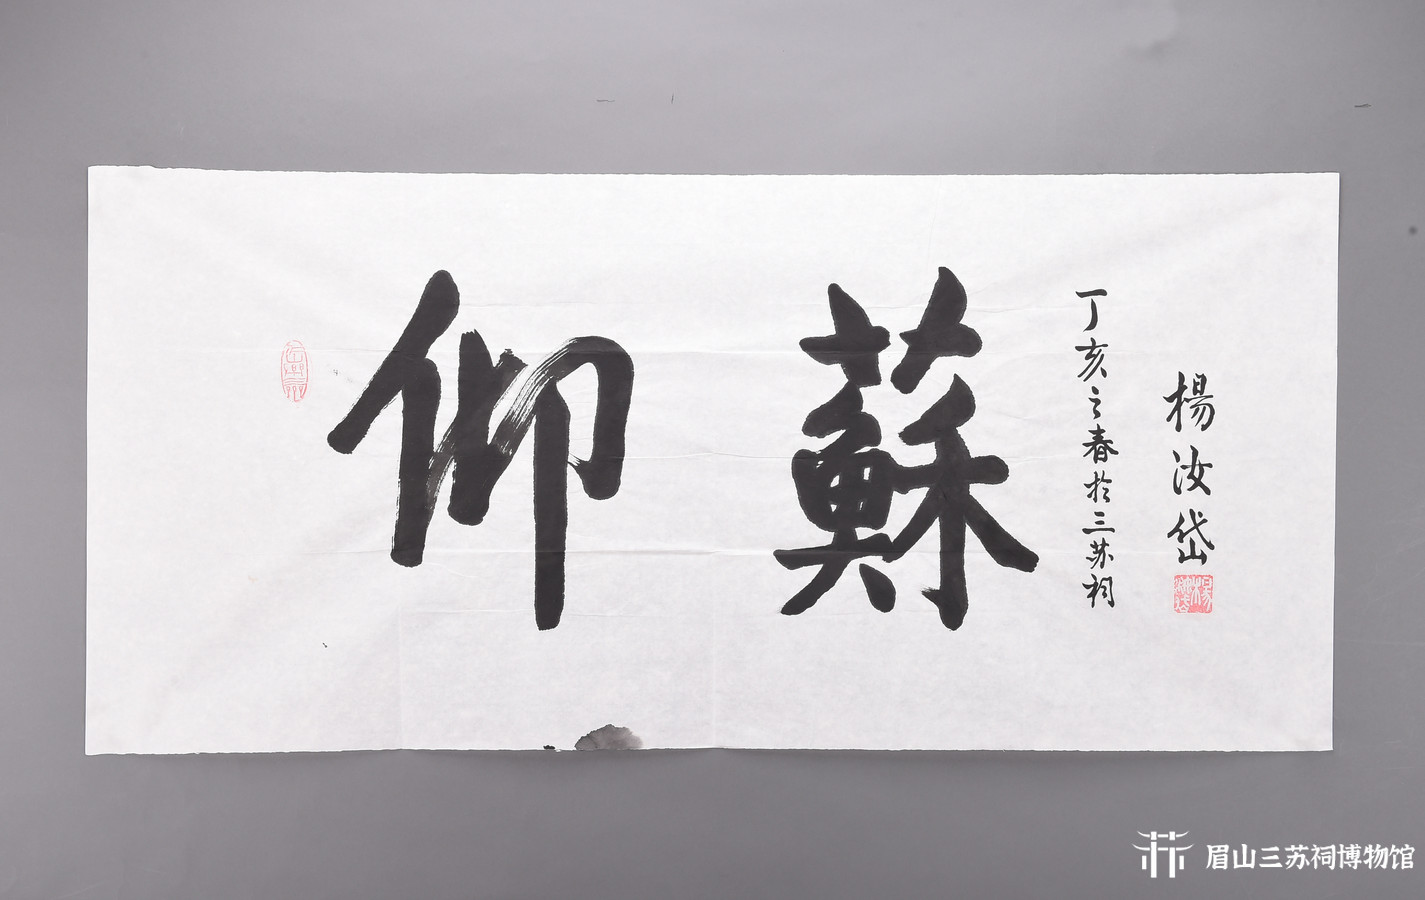 仰蘇
丁亥之春於三苏祠
楊汝岱
楊汝岱
眉山三苏祠博物馆